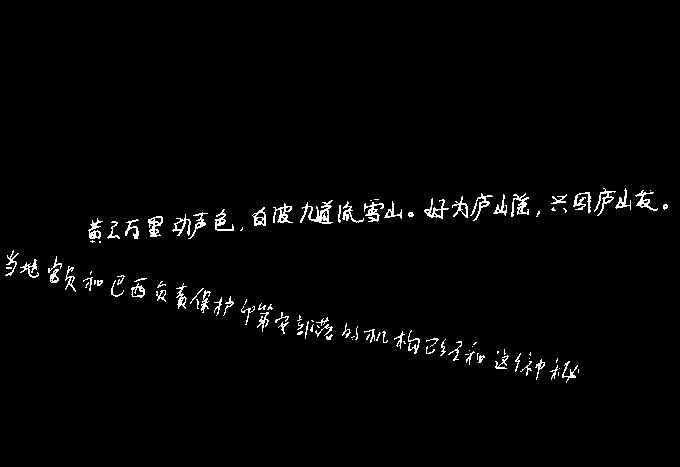 黄云万里动声色，白波九道流雪山。好为庐山谣，兴因庐山发。
当地官员和巴西负责保护印第安部落的机构已经和这个神秘